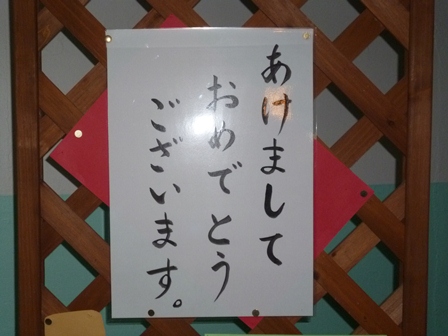 あけまして
おめでとう
ございます。